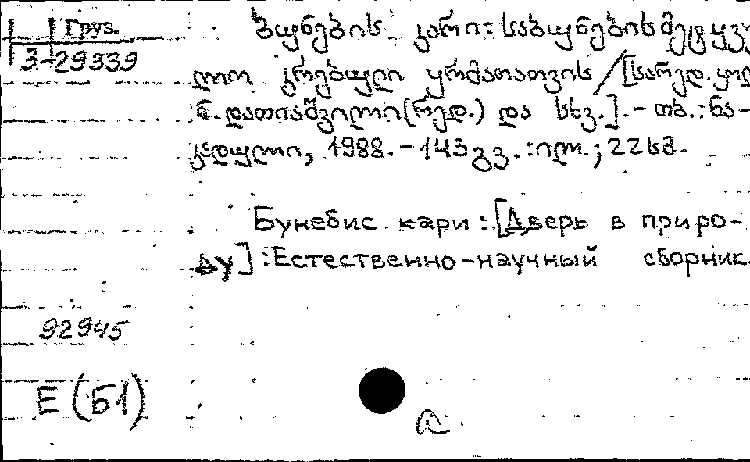 Груз.
3-29339
ბუნების კარი: საბუნებისმეტყვე
ლო კრებული ყრმათათვის / [სარედ. კოლ
ნ. დათიაშვილი (რედ.) და სხვ.]. - თბ.: ნა-
კადული, 1988. - 143 გვ. : ილ.; 22 სმ.
Бунебис кари: [Дверь в приро-
ду] : Естественно-научный сборник.
92945
Е (Б1)